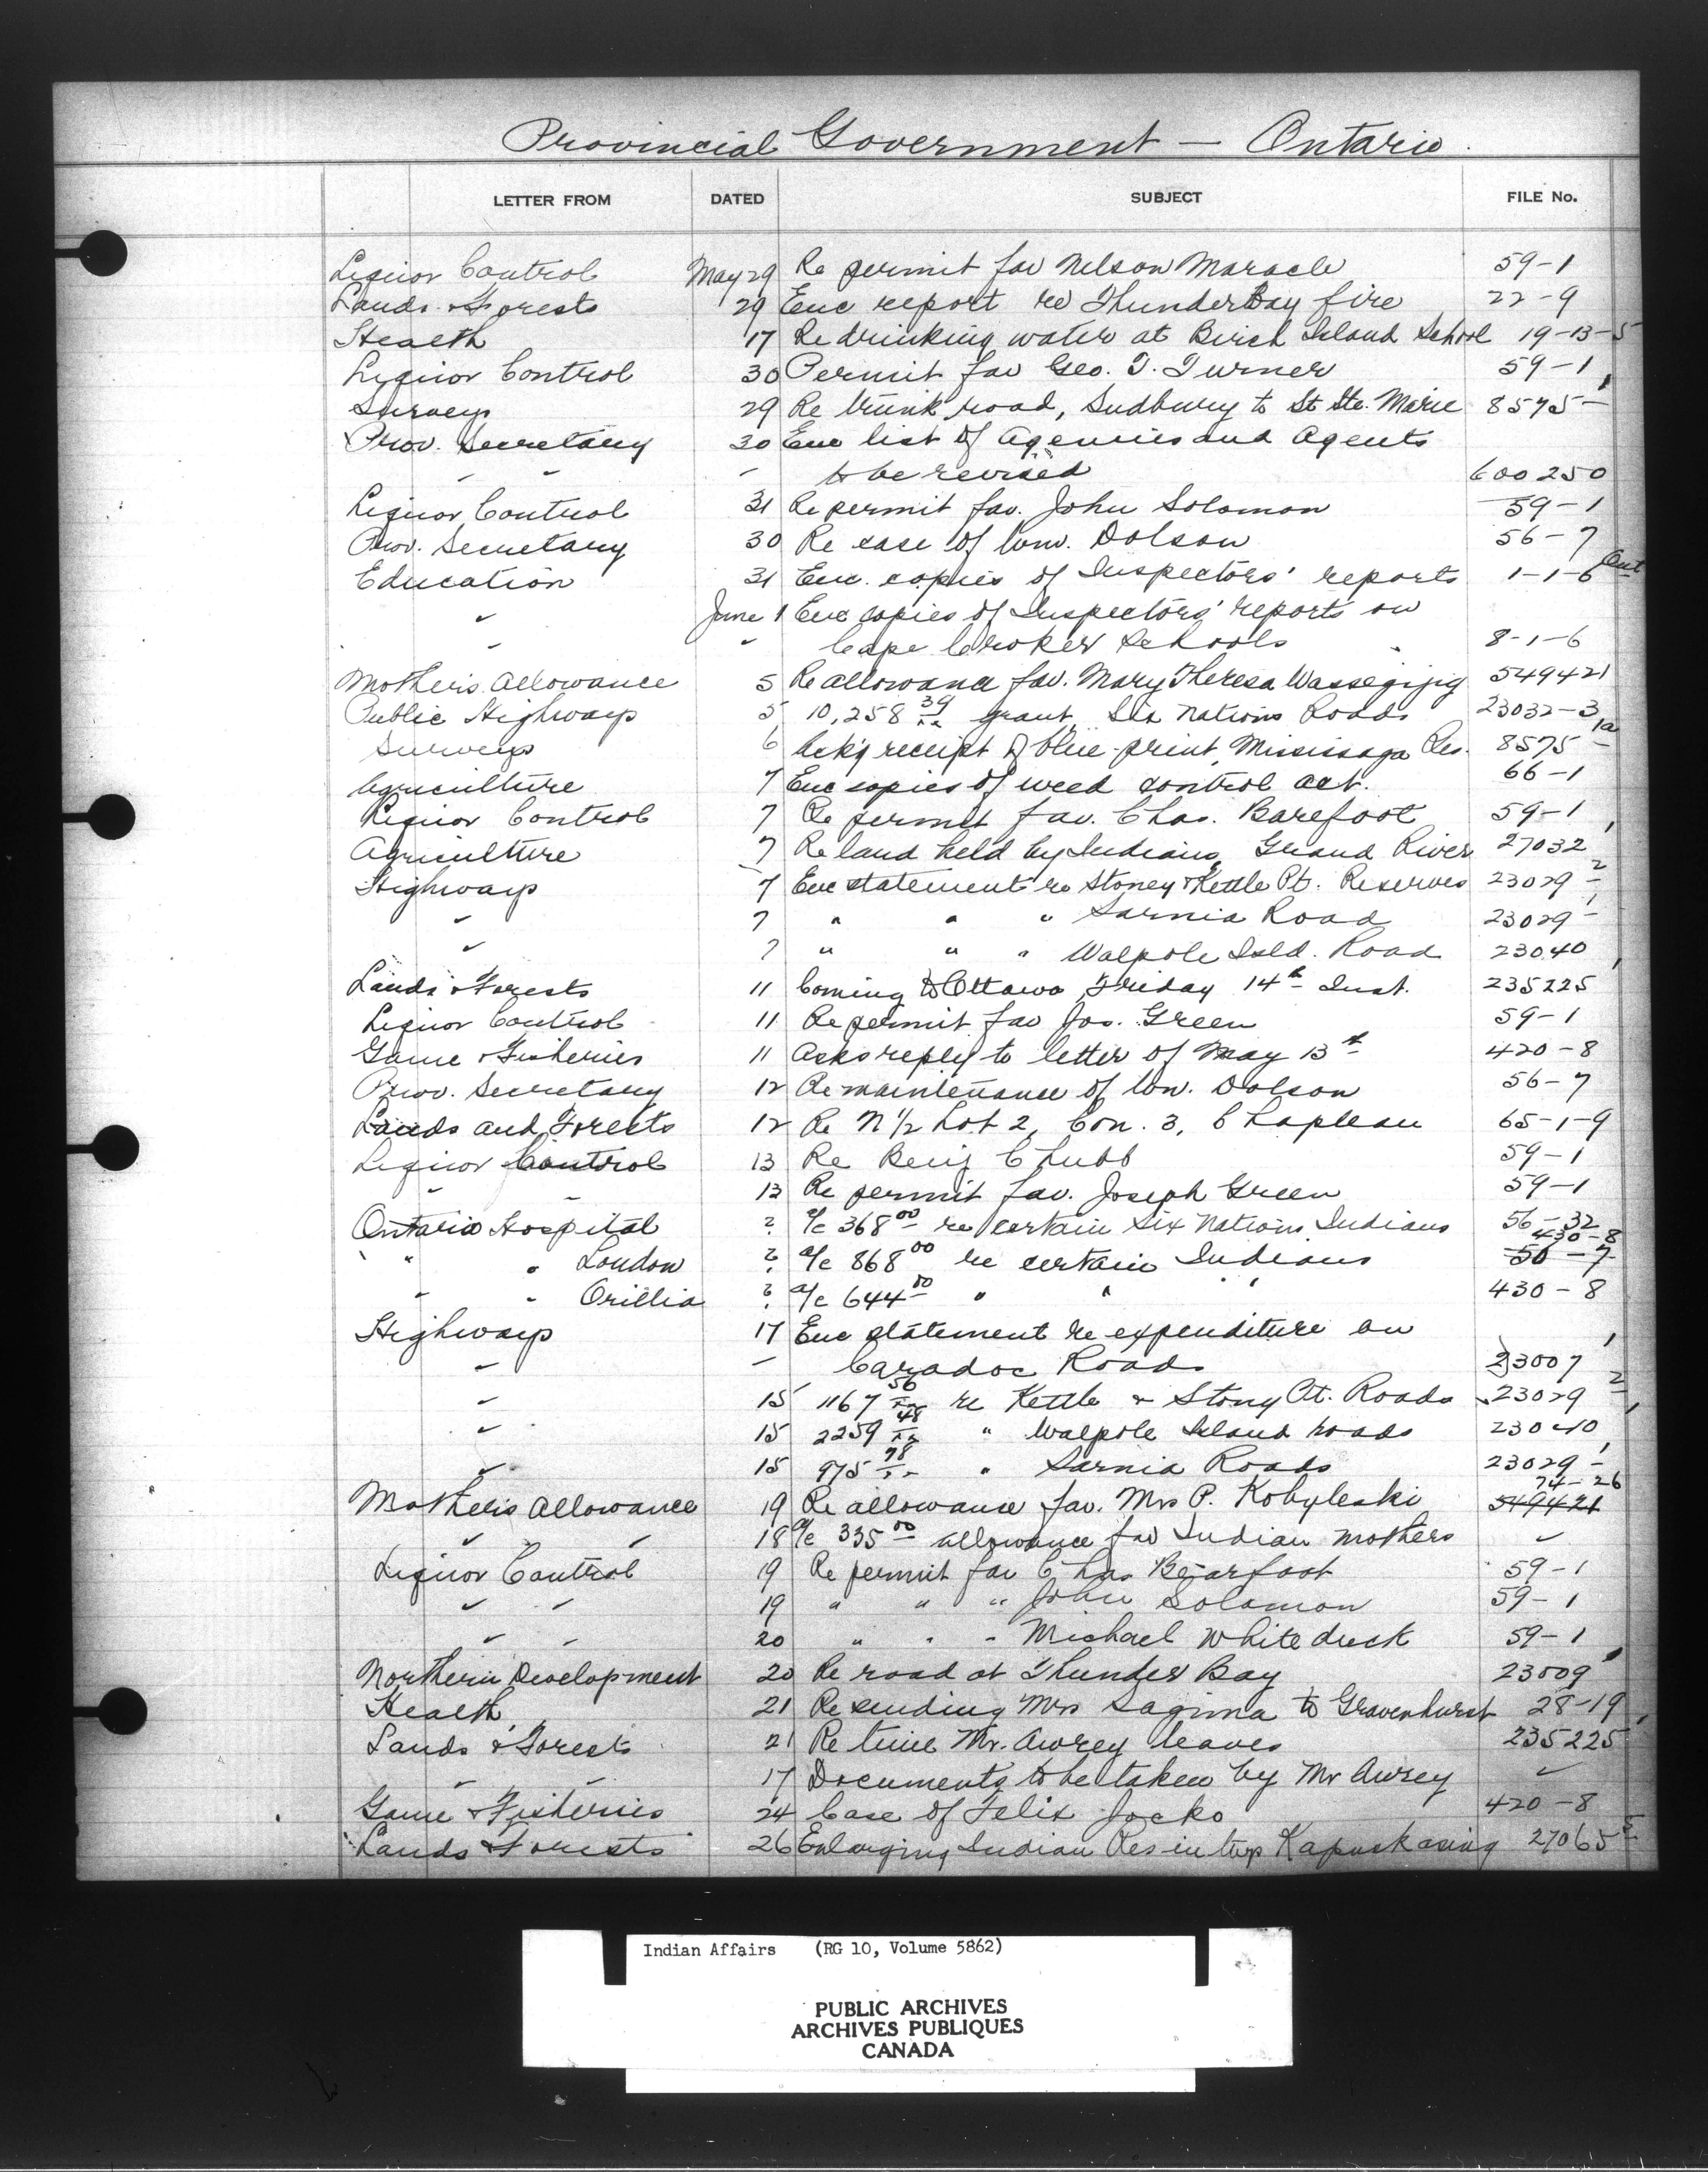 Provincial Government — Ontario.
LETTER FROM DATED SUBJECT FILE No.
Liquor Control May 29 Re permit fav Nelson Maracle 59-1
Lands & Forests 29 Enc report re Thunder Bay fire 22-9
Health 17 Re drinking water at Birch Island School 19-13-5
Liquor Control 30 Permit fav Geo. T. Turner 59-1
Surveys 29 Re trunk road, Sudbury to St Ste. Marie 8575-1
Prov. Secretary 30 Enc list of Agencies and Agents
" " " to be revised 600250
Liquor Control 31 Re permit fav. John Solomon 59-1
Prov. Secretary 30 Re case of Wm. Dolson 56-7
Education 31 Enc. copies of Inspectors' reports 1-1-6 Ont
" June 1 Enc copies of Inspectors' reports on
" " Cape Croker Schools 8-1-6
Mother's Allowance 5 Re allowance fav. Mary Theresa Wassegijig 549421
Public Highways 5 10,258 39/xx grant, Six Nations Roads 23032-3
Surveys 6 Ack'g receipt of blue-print, Mississaga Res. 8575-1a
Agriculture 7 Enc copies of weed control act. 66-1
Liquor Control 7 Re permit fav. Chas. Barefoot 59-1
Agriculture 7 Re land held by Indians, Grand River 27032-1
Highways 7 Enc statement re Stoney & Kettle Pt. Reserves 23029-2
" 7 " " " Sarnia Road 23029-1
" 7 " " " Walpole Isld. Road 23040
Lands & Forests 11 Coming to Ottawa Friday 14th Inst. 235225-1
Liquor Control 11 Re permit fav Jos. Green 59-1
Game & Fisheries 11 Asks reply to letter of May 13th 420-8
Prov. Secretary 12 Re maintenance of Wm. Dolson 56-7
Lands and Forests 12 Re N 1/2 Lot 2, Con. 3, Chapleau 65-1-9
Liquor Control 13 Re Benj Chubb 59-1
" " 13 Re permit fav. Joseph Green 59-1
Ontario Hospital ? a/c 368 00 re certain Six Nations Indians 56-32
" " London ? a/c 868 00 re certain Indians 430-8 50-7
" " Orillia ? a/c 644 00 " " " 430-8
Highways 17 Enc statement re expenditure on
" " Caradoc Roads 23007-1
" 15 1167 56/xx re Kettle & Stony Pt. Roads 23029-2
" 15 2259 48/xx " Walpole Island roads 23040-1
" 15 975 78/xx " Sarnia Roads 23029-1
Mother's Allowance 19 Re allowance fav. Mrs P. Kobyleski 74-26 549421
" " 18 a/c 335 00 allowance fav Indian mothers "
Liquor Control 19 Re permit fav Chas Bearfoot 59-1
" " 19 " " " John Solomon 59-1
" " 20 " " " Michael Whiteduck 59-1
Northern Development 20 Re road at Thunder Bay 23009-1
Health 21 Re sending Mrs Sagima to Gravenhurst 28-19
Lands & Forests 21 Re time Mr. Awrey leaves 235225-1
" " 17 Documents to be taken by Mr Awrey "
Game & Fisheries 24 Case of Felix Jocko 420-8
Lands & Forests 26 Enlarging Indian Res in twp Kapuskasing 27065-5
Indian Affairs (RG 10, Volume 5862)
PUBLIC ARCHIVES
ARCHIVES PUBLIQUES
CANADA